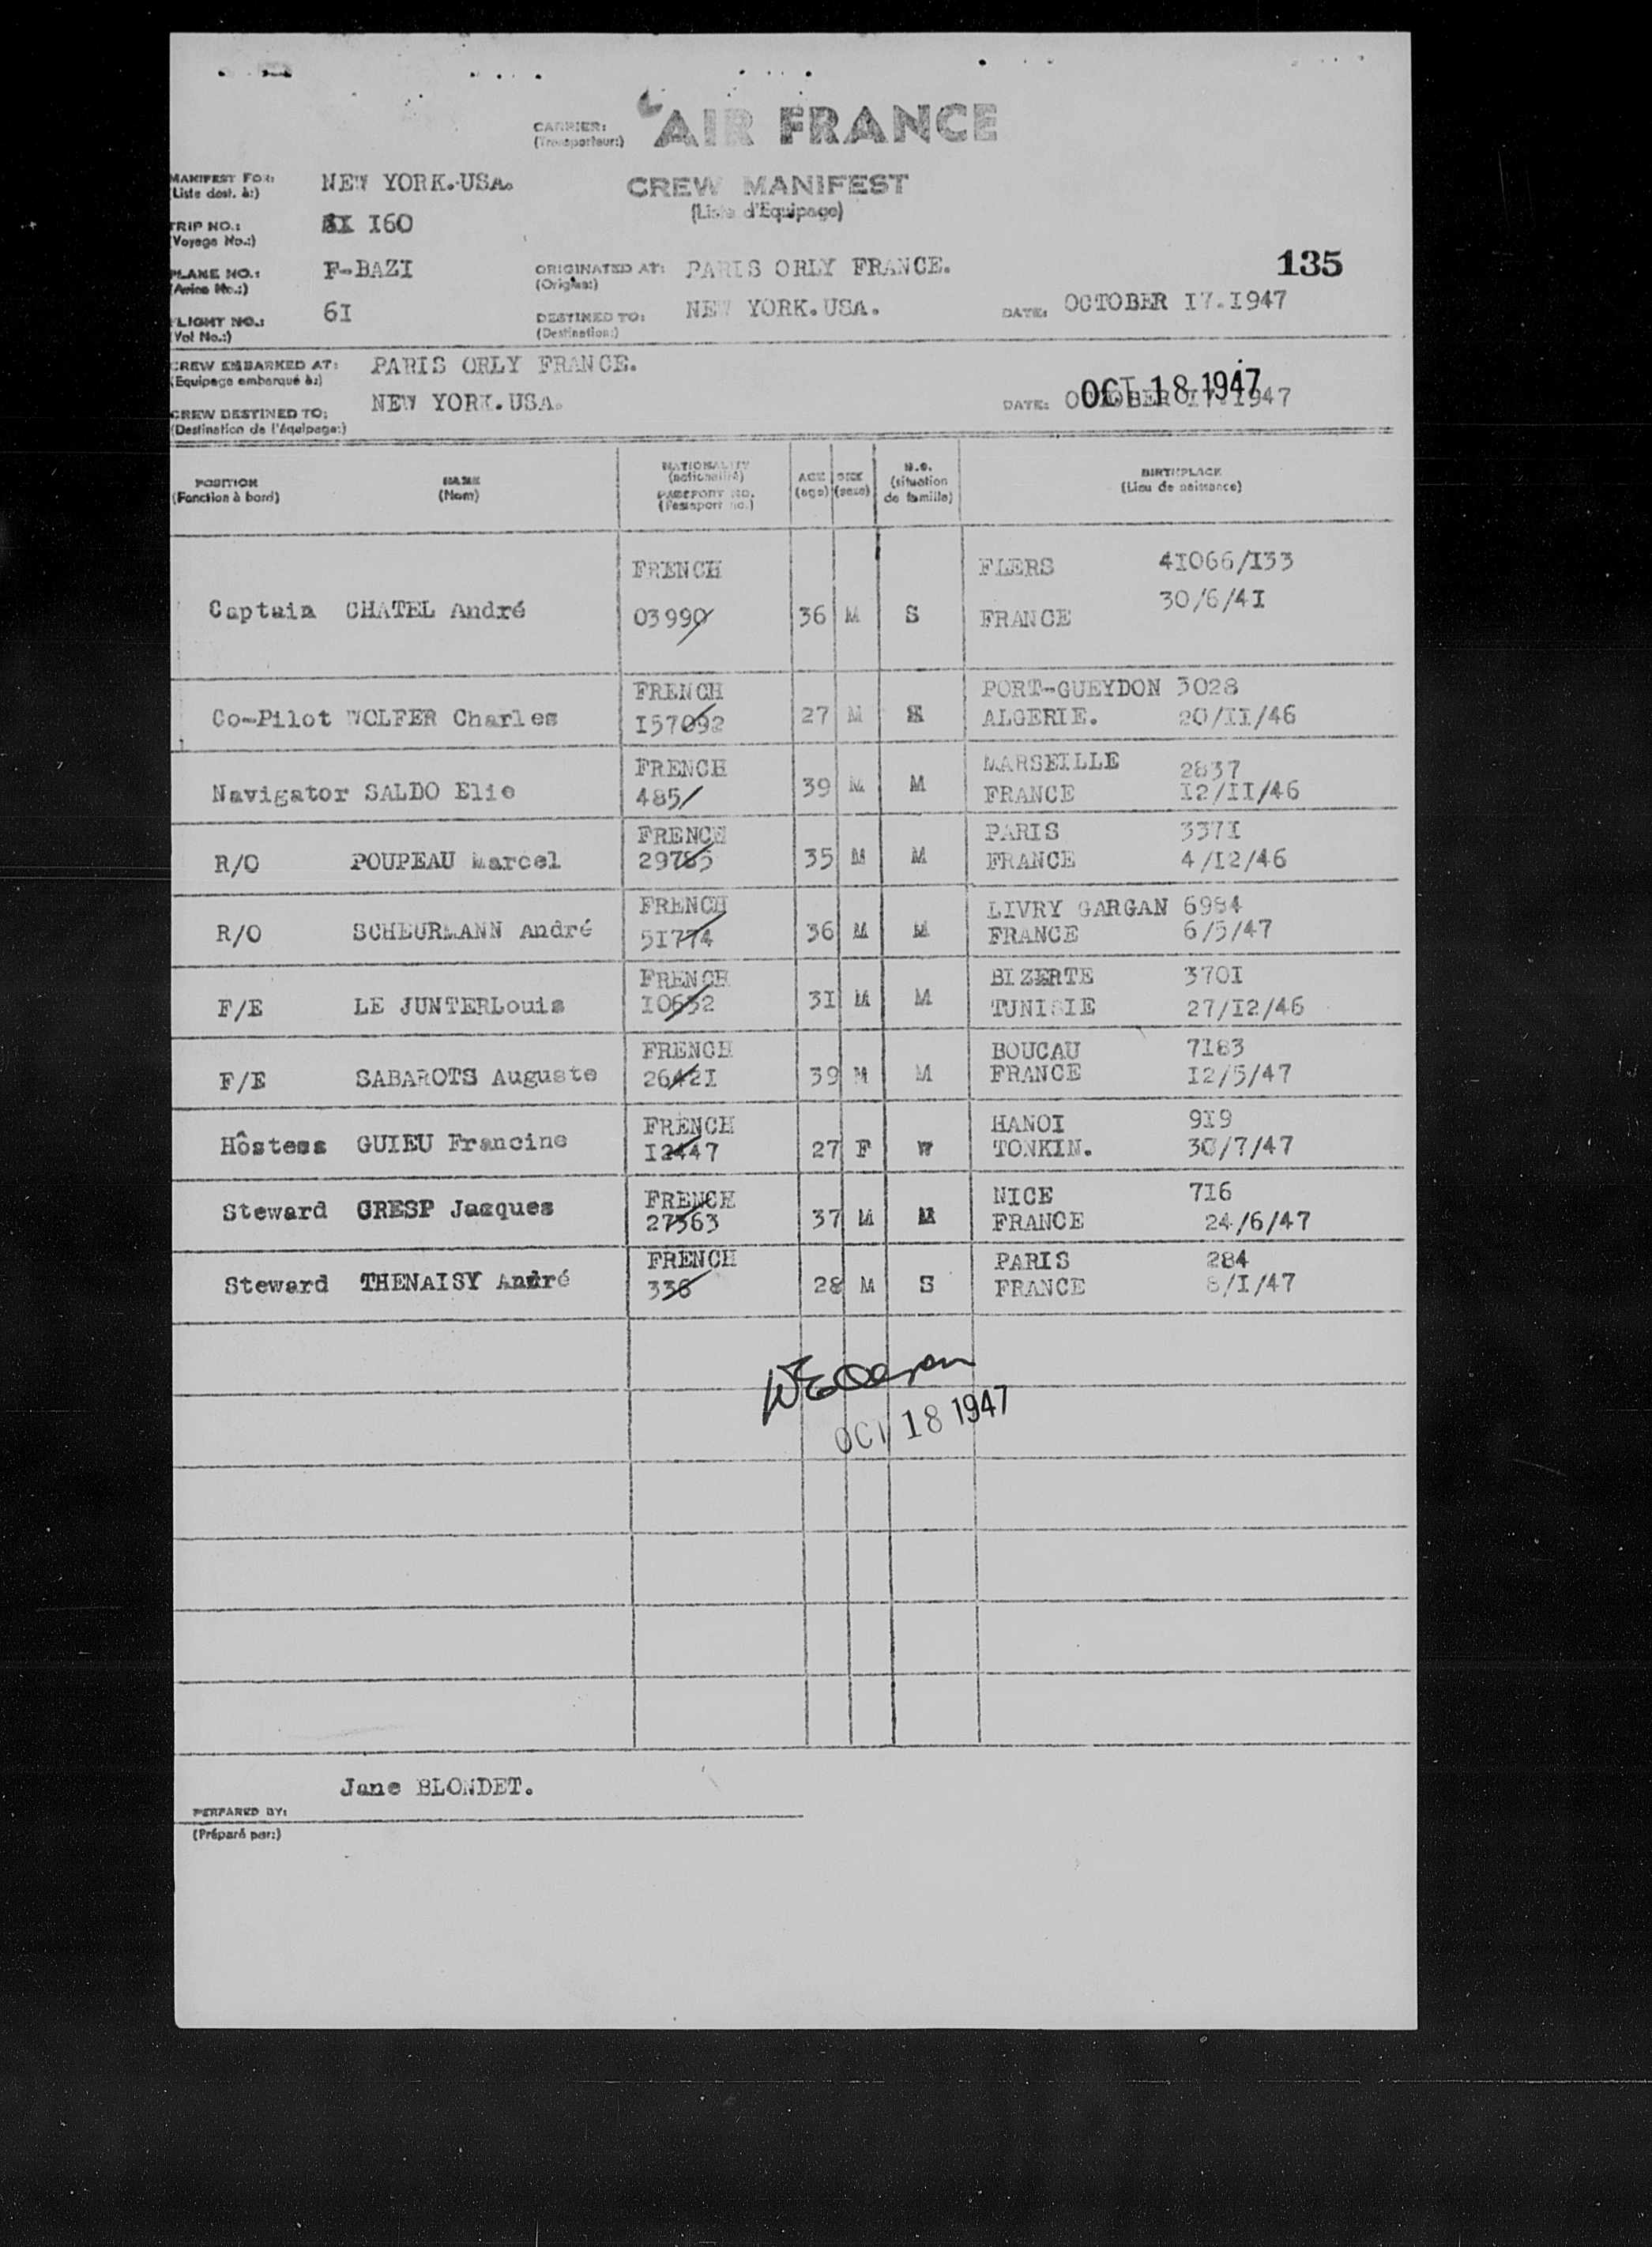 CARRIER: AIR FRANCE
(Transporteur:)
MANIFEST FOR: NEW YORK.USA.
(Liste dest. à:)
CREW MANIFEST
(Liste d'Equipage)
TRIP NO.: I60
(Voyage No.:)
135
PLANE NO.: F-BAZI
(Avion No.:)
ORIGINATED AT: PARIS ORLY FRANCE.
(Origine:)
FLIGHT NO.: 6I
(Vol No.:)
DESTINED TO: NEW YORK.USA.
(Destination:)
DATE: OCTOBER I7.I947
CREW EMBARKED AT: PARIS ORLY FRANCE.
(Equipage embarqué à:)
CREW DESTINED TO: NEW YORK.USA.
(Destination de l'équipage:)
DATE: OCTOBER I7.I947
OCT 18 1947
POSITION
(Fonction à bord)
NAME
(Nom)
NATIONALITY
(nationalité)
PASSPORT NO.
(Passeport no.)
AGE
(age)
SEX
(sexe)
(situation
de famille)
BIRTHPLACE
(Lieu de naissance)
FRENCH FLERS 4I066/I33
Captain CHATEL André 03990 36 M S FRANCE 30/6/4I
FRENCH PORT-GUEYDON 3028
Co-Pilot WOLFER Charles I57092 27 M ALGERIE. 20/II/46
FRENCH MARSEILLE 2837
Navigator SALDO Elie 485 39 M M FRANCE I2/II/46
FRENCH PARIS 337I
R/O POUPEAU Marcel 29785 35 M M FRANCE 4/I2/46
FRENCH LIVRY GARGAN 6984
R/O SCHEURMANN André 5I774 36 M M FRANCE 6/5/47
FRENCH BIZERTE 370I
F/E LE JUNTERLouis I0632 3I M M TUNISIE 27/I2/46
FRENCH BOUCAU 7I83
F/E SABAROTS Auguste 2642I 39 M M FRANCE I2/5/47
FRENCH HANOI 9I9
Hôstess GUIEU Francine I2447 27 F W TONKIN. 30/7/47
FRENCH NICE 7I6
Steward GRESP Jacques 27363 37 M M FRANCE 24/6/47
FRENCH PARIS 284
Steward THENAISY André 336 28 M S FRANCE 8/I/47
OCT 18 1947
Jane BLONDET.
PERPARED BY:
(Préparé par:)